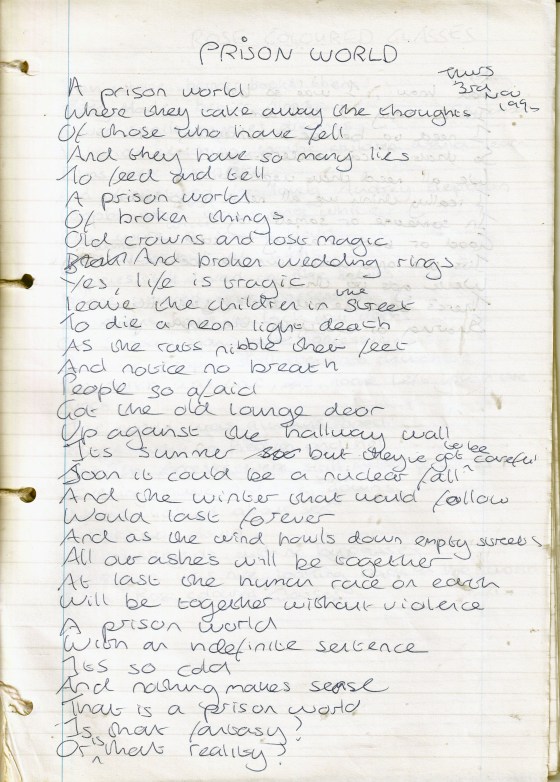 PRISON WORLD
Thurs
3rd Nov
A prison world
Where they take away the thoughts
Of those who have fell
And they have so many lies
To feed and tell
A prison world
Of broken things
Old crowns and lost magic
And broken wedding rings
Yes, life is tragic
Leave the children in the street
To die a neon light death
As the rats nibble their feet
And notice no breath
People so afaid
Got the old lounge door
Up against the hallway wall
Its summer but they've got to be careful
Soon it could be a nuclear fall
And the winter that would follow
Would last forever
And as the wind howls down empty streets
All our ashes will be together
At last the human race on earth
Will be together without violence
A prison world
With an indefinite sentence
Its so cold
And nothing makes sense
That is a prison world
Is that fantasy?
Or is that reality?